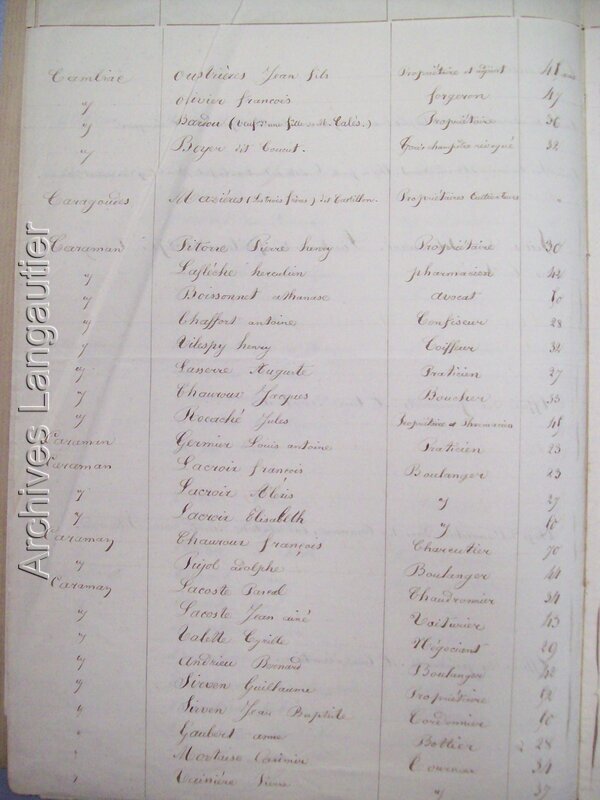 Cambiac Oustrières Jean fils Propriétaire et adjoint 48 ans
〃 Olivier françois forgeron 47
〃 Bardou (veuf d'une fille de M. Calès.) Propriétaire 36
〃 Boyer dit Coucut. Garde champêtre révoqué 32
Caragoudes Mazières (Les trois frères) dit Castillon. Propriétaires Cultivateurs 〃
Caraman Pitorre Pierre henry Propriétaire 30
〃 Laflèche herculien pharmacien 42
〃 Boissonnet athanase avocat 60
〃 Chaffort antoine Confiseur 28
〃 Vilespy henry Coiffeur 32
〃 Lasserre Auguste Praticien 27
〃 Chauroux Jacques Boucher 33
〃 Rocaché Jules Propriétaire et Pharmacien 48
Caraman Germier Louis antoine Praticien 23
Caraman Lacroix françois Boulanger 23
〃 Lacroix Aléxis 〃 27
〃 Lacroix Elisabeth 〃 60
Caraman Chauroux françois Charcutier 70
〃 Pujol adolphe Boulanger 44
Caraman Lacoste Pascal Chaudronnier 34
〃 Lacoste Jean ainé Voiturier 43
〃 Valette Cyrille Négociant 29
〃 Andrieu Bernard Boulanger 42
〃 Sirven Guillaume Propriétaire 52
〃 Sirven Jean Baptiste Cordonnier 50
〃 Gaubert anne Bottier 28
〃 Mortaise Casimir 34
〃 Pierre 〃 37
Archives Langautier